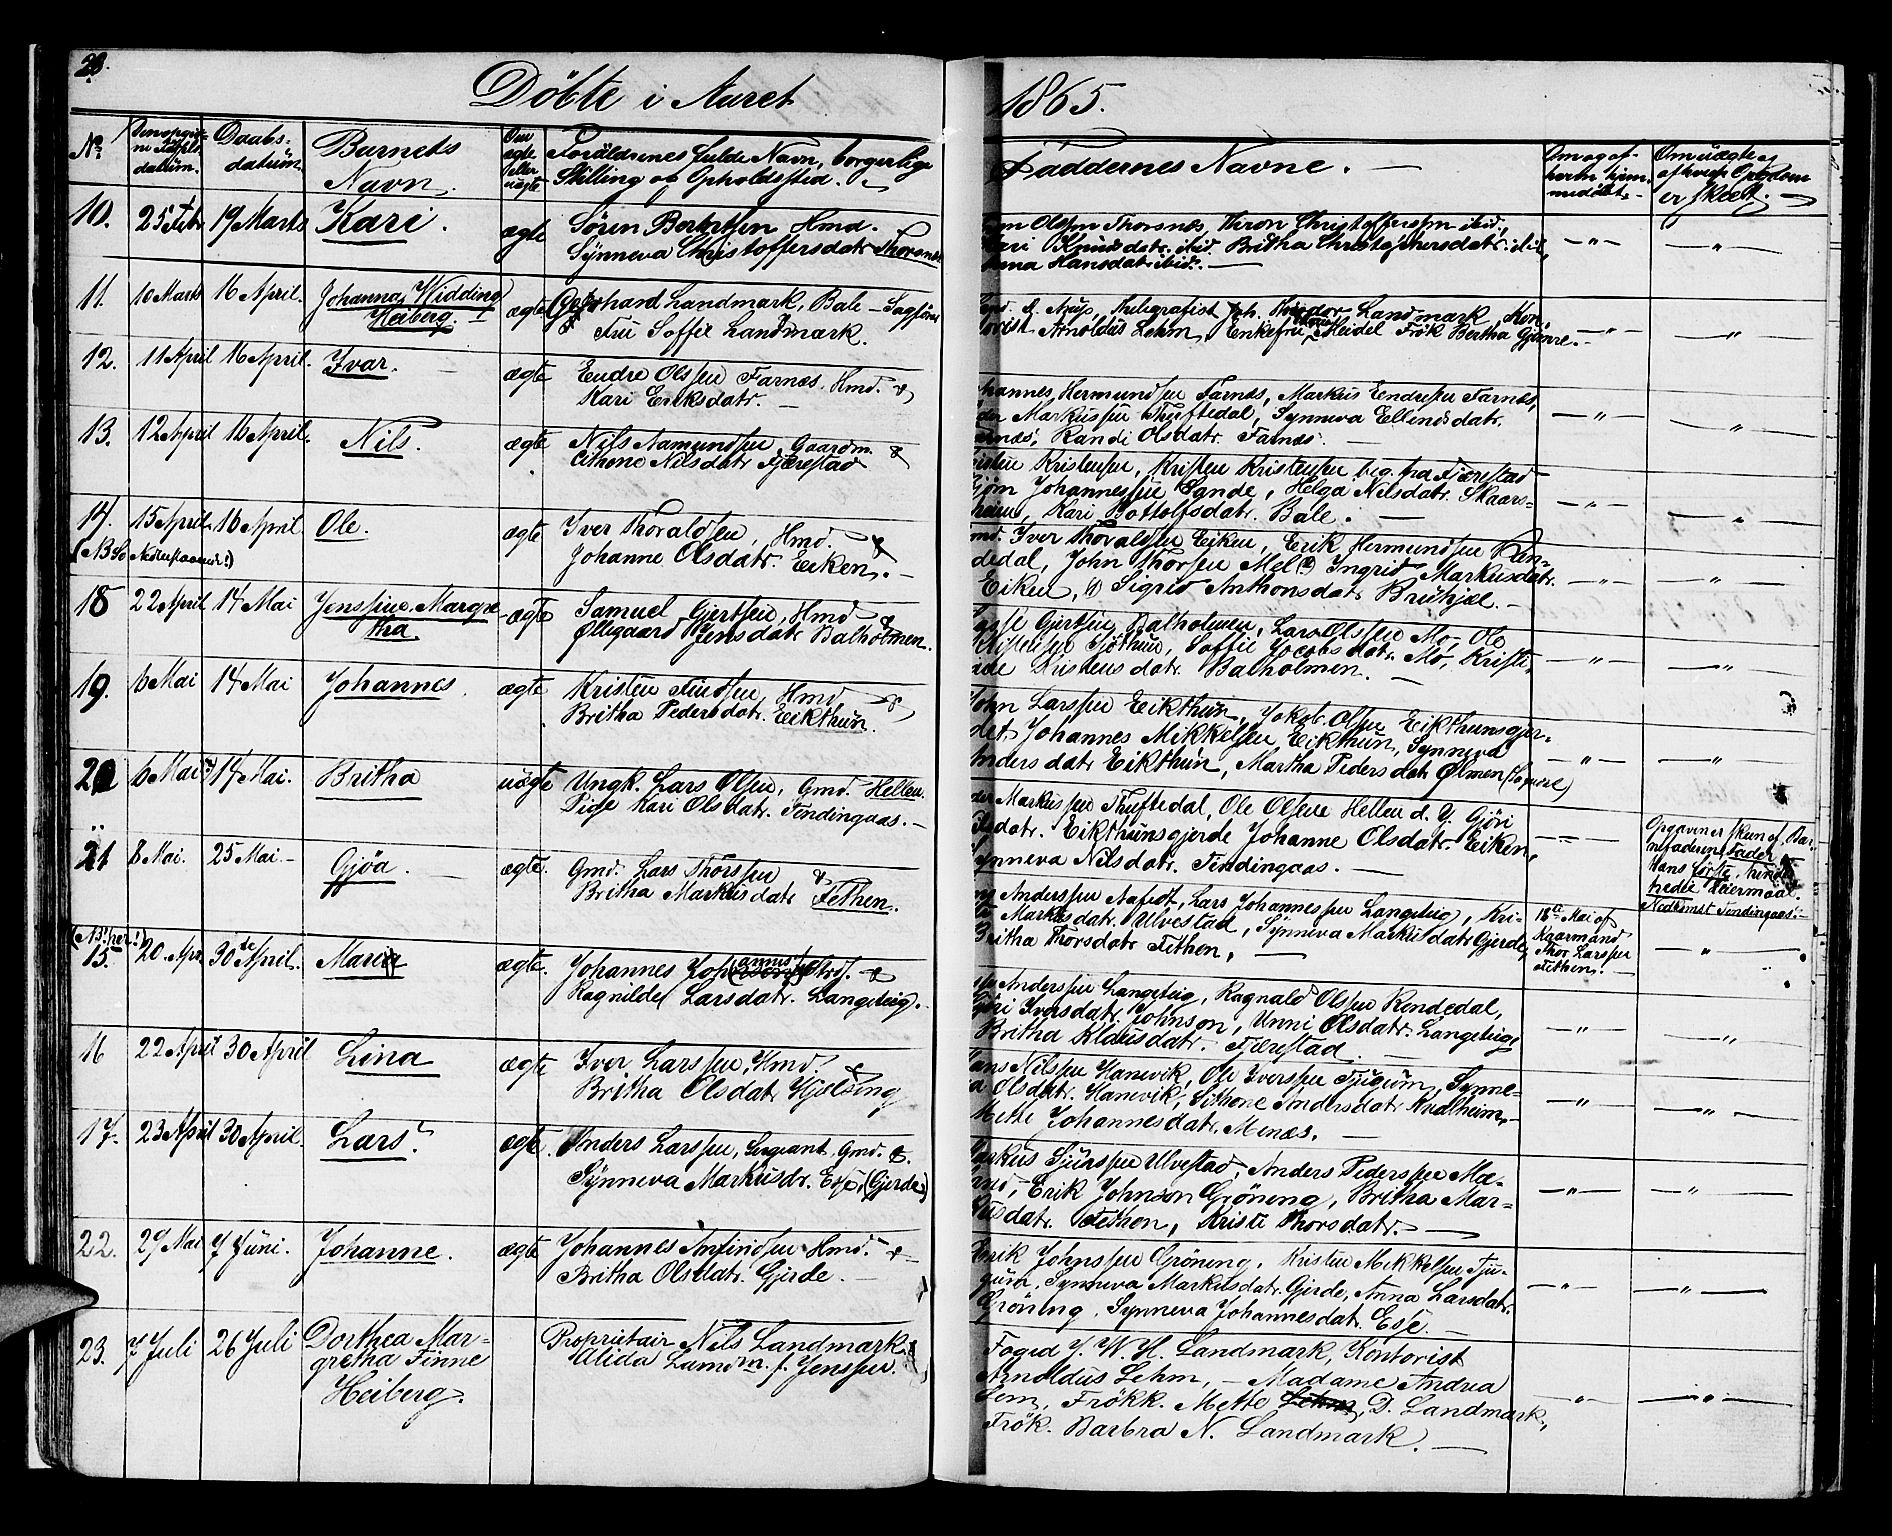 28.
Döbte i Aaret
1865.
No.
Daabs-
datum.
Barnets
Navn.
Om
ægte
eller
uægte
Forældrenes fulde Navn, borgerlige
Stilling og Opholdssted.
Faddernes Navne.
Om og af
hvem hjem-
medöbt.
Om uægte og
af hvem Opgaven
er skeet.
10. 25 Febr 19 Marts Kari. ægte Sören Bertelsen Hmd.
Synneva Christoffersdatr Thorsnæs
Olssen Thorsnæs, Christoffersen ibid,
Kari Knudsdatr. ibid. Britha Christophersdatr. ibid,
Hansdatr ibid. —
—"— —"—
11. 10 Marts 16 April. Johanna Widding
Heiberg. ægte Gerhard Landmark, Bale - Sagförer
Fru Soffie Landmark.
Telegrafist Joh. Landmark, Kon-
torist Arnoldus Lehm, Enkefru Meidel Frök Bertha Gjönre.
—"— —"—
12. 11 April 16 April. Ivar. ægte Endre Olssen Farnæs. Hmd. &
Kari Eriksdatr. —
Johannes Hermundsen Farnæs, Markus Endresen Farnæs,
Markussen Thuftedal, Synneva Ellendsdatr.
Farnæs, Randi Olsdatr. Farnæs. —
—"— —"—
13. 12 April 16 April. Nils. ægte Nils Aamundsen, Gaardm. &
Cithone Nilsdatr Fjærestad
Kristen Kristensen, Kristen Kristensen beg. fra Fjærestad
Johannessen Sande, Helga Nilsdatr. Skaars-
heim, Kari Bottolfsdatr. Bale. —
—"— —"—
14. 15 April. 16 April. Ole. ægte Iver Thoraldsen, Hmd. &
Johanne Olsdatr. Eeken. —
(NB. Se Nedenstaaende!)
Iver Thoraldsen Eeken, Erik Hermundsen Ren-
dedal, John Thorsen Mel, Ingrid Markusdatr.
Eeken, Sigrid Anthonsdatr. —
—"— —"—
18 22 April 14 Mai Jenssine Margre-
tha ægte Samuel Gjertsen, Hmd &
Øllegaard Jensdatr Balholmen.
Gjertsen Balholmen, Lars Olssen Mo, Ole
Kristensen Sjöthun, Soffie Jacobsdatr. Mo, Kristi-
Kristensdatr. Balholmen. —
—"— —"—
19. 6 Mai 14 Mai Johannes. ægte Kristen Findsen, Hmd &
Britha Pedersdatr. Eikthun.
John Larssen Eikthun, Jokob Olssen Eikthunsgjer-
det, Johannes Mikkelsen Eikthun, Synneva
Andersdatr Eikthun, Martha Pedersdatr Ølmen
—"— —"—
20 6 Mai 14 Mai. Britha uægte Ungk. Lars Olsen, Gmd. Hellen.
Pige Kari Olsdatr. Tendingaas. —
Markussen Thuftedal, Ole Olssen Hellen d. Y. Gjöri
Eikthunsgjerde Johanne Olsdatr. Eeken,
Synneva Nilsdatr. Tendingaas. —
—"—
Opgaven er skeen af Bar-
nefaderen
hans förste,
Leiermaal.
Nedkomst Tendingaas. —
21 8 Mai. 25 Mai. — Gjöa. ægte. Gmd. Lars Thorssen &
Britha Markusdatr Fethen.
Anderssen Nafsdt, Lars Johannessen Langeteig, Kri-
Markusdatr. Ulvestad, Synneva Markusdatr Gjerde,
Britha Thorsdatr Fethen, —
18de Mai af
Kaarmand
Thor Larssen
Fethen. —
—"—
(NB. her!)
15. 20 Apr. 30de April. Maria ægte. Johannes Johannessen Strd. &
Ragnilde Larsdatr. Langeteig. —
Anderssen Langeteig, Ragnald Olssen Rendedal,
Gjöri Iversdatr. Johnson, Unni Olsdatr. Langeteig,
Britha Klausdatr. Fjærestad. —
—"— —"—
16 22 April 30 April Lina ægte Iver Larssen, Hmd. &
Britha Olsdatr Hjelsing
Hans Nilssen Hanevik, Ole Iverssen Tjugum, Synne-
va Olsdatr. Hanevik, Sithone Andersdatr Kvalheim,
Mette Johannesdatr. Menæs. —
—"— —"—
17. 23 April 30 April. Lars. ægte. Anders Larssen, Sergeant, Gmd. &
Synneva Markusdr. Ese, (Gjerde)
Markus Sjurssen Ulvestad, Anders Pederssen Mæ-
Erik Johnson Gröning, Britha Mar-
kusdatr. Fethen, Kristi Thorsdatr. —
—"— —"—
22. 29 Mai 7 Juni. Johanne. ægte Johannes Anfindsen Hmd. &
Britha Olsdatr. Gjerde. —
Erik Johnssen Gröning, Kristen Mikkelsen Tju-
gum, Synneva Markusdatr. Gjerde, Anna Larsdatr.
Gröning, Synneva Johannesdat. Ese. —
—"— —"—
23. 7 Juli 26 Juli Dorthea Mar-
gretha Finne
Heiberg. Proprietair Nils Landmark &
Alida Landm. f. Jenssen.
Foged J. W. H. Landmark, Kontorist
Arnoldus Lehm, — Madame Andrea
Lem, Frökk. Mette Lehm, D. Landmark,
Frök. Barbra N. Landmark. —
—"— —"—